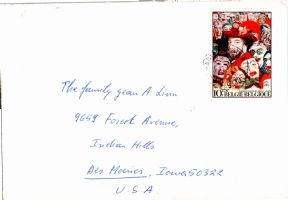 10F BELGIE-BELGIQUE
The family Jean A Linn
9659 Forest Avenue,
Indian Hills
Des Moines, Iowa 50322
U.S.A.